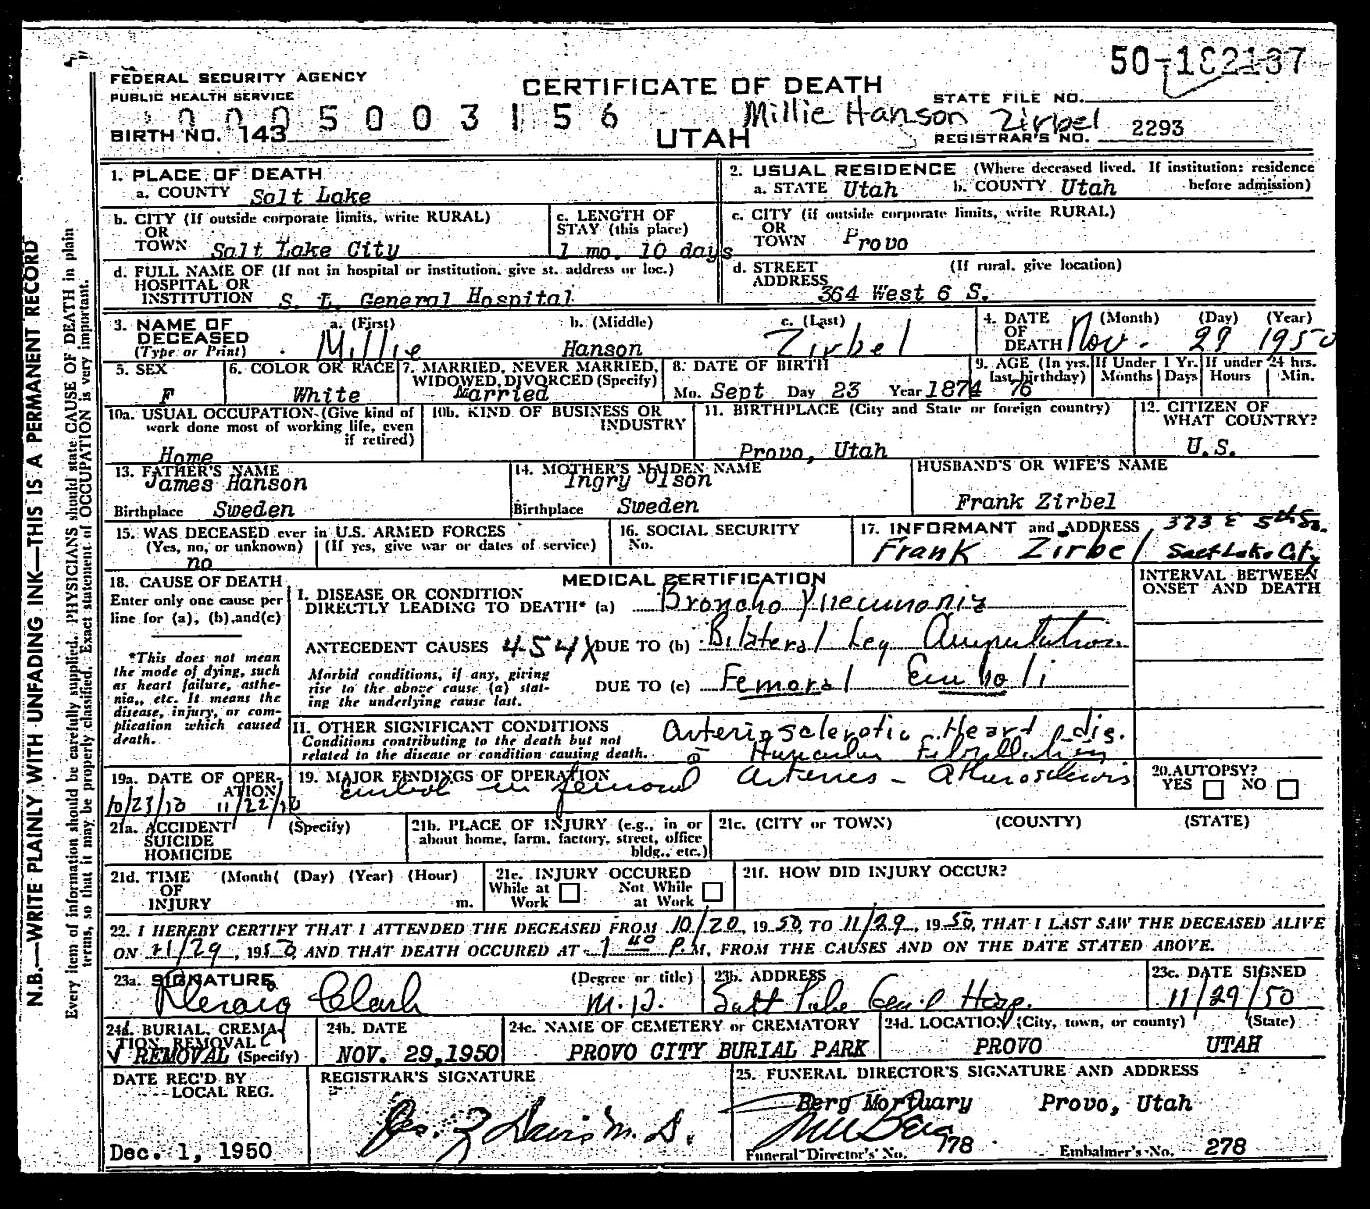 50-182137
FEDERAL SECURITY AGENCY
PUBLIC HEALTH SERVICE
CERTIFICATE OF DEATH
STATE FILE NO.
0005003156
Millie Hanson Zirbel
BIRTH NO. 143
UTAH
REGISTRAR'S NO. 2293
N.B.—WRITE PLAINLY WITH UNFADING INK—THIS IS A PERMANENT RECORD
Every item of information should be carefully supplied. PHYSICIANS should state CAUSE OF DEATH in plain
terms, so that it may be properly classified. Exact statement of OCCUPATION is very important.
1. PLACE OF DEATH
a. COUNTY Salt Lake
2. USUAL RESIDENCE (Where deceased lived. If institution: residence
a. STATE Utah b. COUNTY Utah before admission)
b. CITY (If outside corporate limits, write RURAL)
OR
TOWN Salt Lake City
c. LENGTH OF
STAY (this place)
1 mo. 10 days
c. CITY (if outside corporate limits, write RURAL)
OR
TOWN Provo
d. FULL NAME OF (If not in hospital or institution, give st. address or loc.)
HOSPITAL OR
INSTITUTION S. L. General Hospital
d. STREET (If rural, give location)
ADDRESS 364 West 6 S.
3. NAME OF
DECEASED
(Type or Print)
a. (First) b. (Middle) c. (Last)
Millie Hanson Zirbel
4. DATE (Month) (Day) (Year)
OF
DEATH Nov. 29 1950
5. SEX
F
6. COLOR OR RACE
White
7. MARRIED, NEVER MARRIED,
WIDOWED, DIVORCED (Specify)
Married
8. DATE OF BIRTH
Mo. Sept Day 23 Year 1874
9. AGE (In yrs. last birthday) 76
If Under 1 Yr. Months Days
If under 24 hrs. Hours Min.
10a. USUAL OCCUPATION (Give kind of
work done most of working life, even
if retired)
Home
10b. KIND OF BUSINESS OR
INDUSTRY
11. BIRTHPLACE (City and State or foreign country)
Provo, Utah
12. CITIZEN OF
WHAT COUNTRY?
U.S.
13. FATHER'S NAME
James Hanson
Birthplace Sweden
14. MOTHER'S MAIDEN NAME
Ingry Olson
Birthplace Sweden
HUSBAND'S OR WIFE'S NAME
Frank Zirbel
15. WAS DECEASED ever in U.S. ARMED FORCES
(Yes, no, or unknown) (If yes, give war or dates of service)
no
16. SOCIAL SECURITY
No.
17. INFORMANT and ADDRESS 373 E 5th So.
Frank Zirbel Salt Lake City
18. CAUSE OF DEATH
Enter only one cause per
line for (a), (b), and (c)
*This does not mean
the mode of dying, such
as heart failure, asthe-
nia, etc. It means the
disease, injury, or com-
plication which caused
death.
MEDICAL CERTIFICATION
INTERVAL BETWEEN
ONSET AND DEATH
I. DISEASE OR CONDITION
DIRECTLY LEADING TO DEATH* (a) Broncho Pneumonia
ANTECEDENT CAUSES 454X DUE TO (b) Bilateral Leg Amputation
Morbid conditions, if any, giving
rise to the above cause (a) stat-
ing the underlying cause last.
DUE TO (c) Femoral Emboli
II. OTHER SIGNIFICANT CONDITIONS
Conditions contributing to the death but not
related to the disease or condition causing death.
Arteriosclerotic Heart dis.
Fibrillation
19a. DATE OF OPER-
ATION
10/23/50 11/22/50
19. MAJOR FINDINGS OF OPERATION
Emboli in femoral Arteries - Atherosclerosis
20. AUTOPSY?
YES NO
21a. ACCIDENT (Specify)
SUICIDE
HOMICIDE
21b. PLACE OF INJURY (e.g., in or
about home, farm, factory, street, office
bldg., etc.)
21c. (CITY or TOWN) (COUNTY) (STATE)
21d. TIME (Month( (Day) (Year) (Hour)
OF
INJURY m.
21e. INJURY OCCURED
While at Work Not While at Work
21f. HOW DID INJURY OCCUR?
22. I HEREBY CERTIFY THAT I ATTENDED THE DECEASED FROM 10/20, 1950 TO 11/29, 1950, THAT I LAST SAW THE DECEASED ALIVE
ON 11/29, 1950 AND THAT DEATH OCCURED AT 1 40 P.M, FROM THE CAUSES AND ON THE DATE STATED ABOVE.
23a. SIGNATURE (Degree or title)
Clark M.D.
23b. ADDRESS
Salt Lake Gen'l Hosp.
23c. DATE SIGNED
11/29/50
24a. BURIAL, CREMA-
TION, REMOVAL
REMOVAL (Specify)
24b. DATE
NOV. 29, 1950
24c. NAME OF CEMETERY or CREMATORY
PROVO CITY BURIAL PARK
24d. LOCATION (City, town, or county) (State)
PROVO UTAH
DATE REC'D BY
LOCAL REG.
Dec. 1, 1950
REGISTRAR'S SIGNATURE
Geo. Z Davis M.D.
25. FUNERAL DIRECTOR'S SIGNATURE AND ADDRESS
Berg Mortuary Provo, Utah
Berg
Funeral Director's No. 778 Embalmer's No. 278